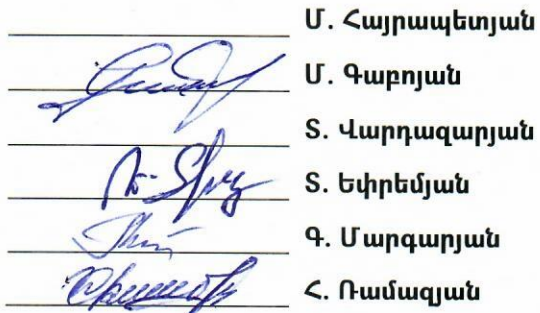 Մ. Հայրապետյան
Մ. Գաբոյան
Տ. Վարդազարյան
Տ. Եփրեմյան
Գ. Մարգարյան
Հ. Ռամազյան